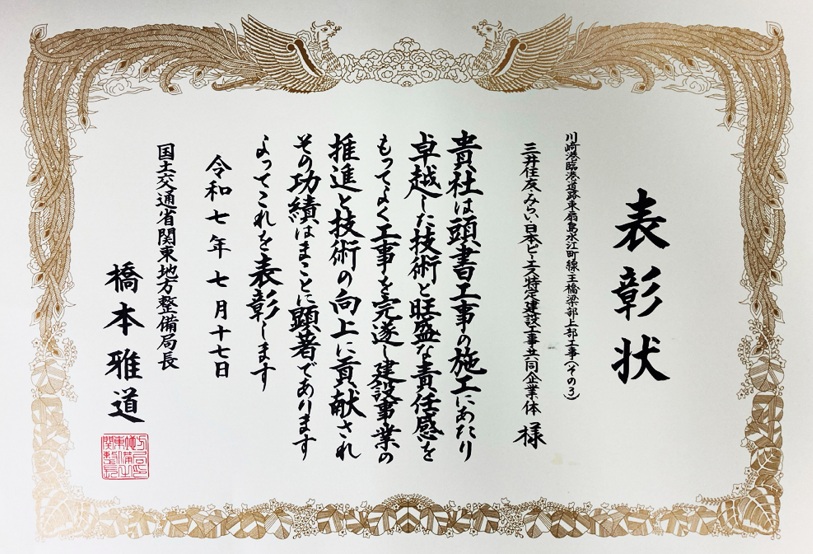 表彰状
川崎港臨港道路東扇島水江町線主橋梁部上部工事(その3)
三井住友・みらい・日本ピーエス特定建設工事共同企業体 様
貴社は頭書工事の施工にあたり
卓越した技術と旺盛な責任感を
もってよく工事を完遂し建設事業の
推進と技術の向上に貢献され
その功績はまことに顕著であります
よってこれを表彰します
令和七年七月十七日
国土交通省関東地方整備局長
橋本雅道